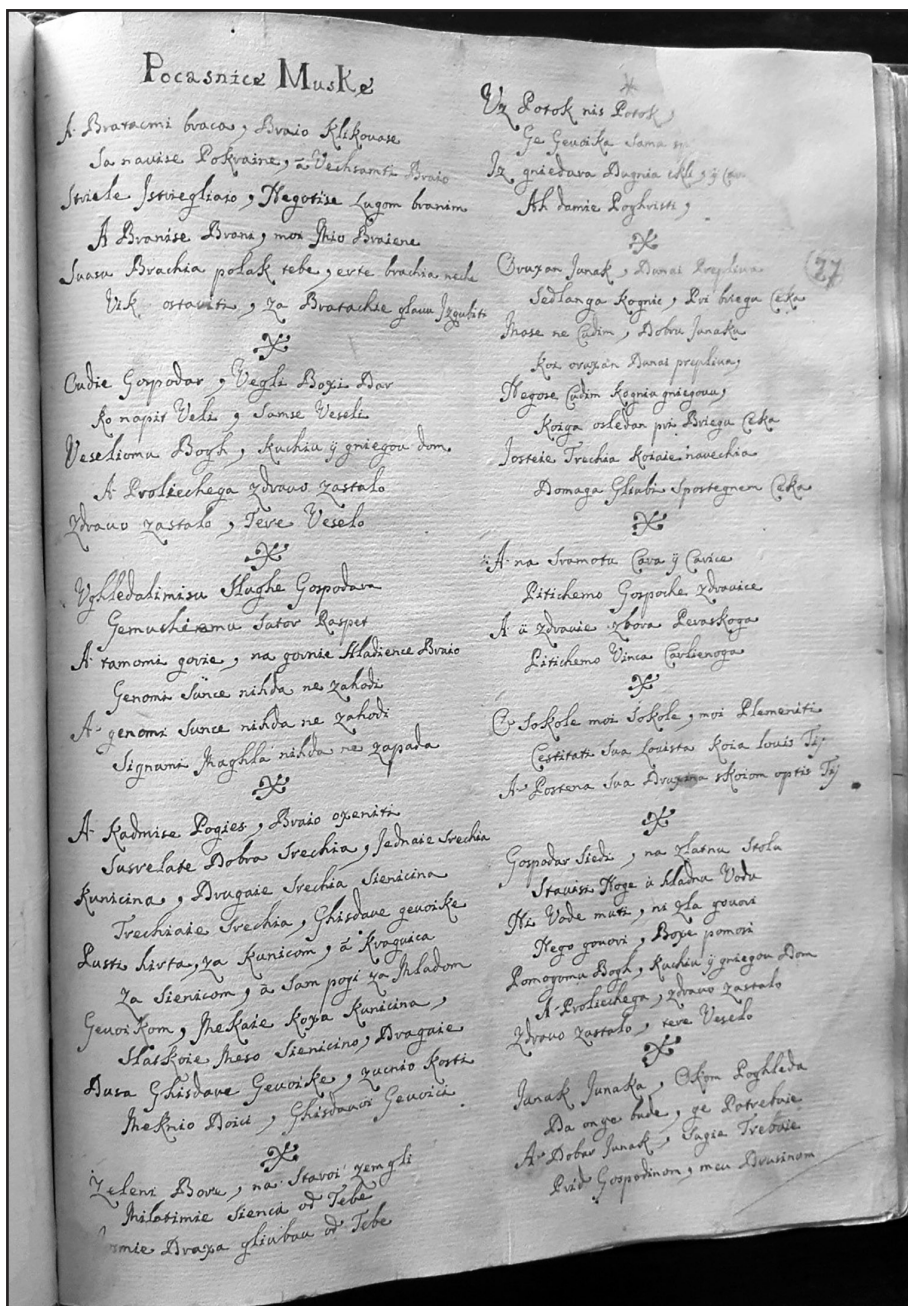 Pocasnice Muske
A Bratacmi braca, Braio Klikovase
Sa navise Pokraine, ā Vechsamti Braio
Striele Istriegliaio, Negotise Lugom branim
A Branise Brani, moi Mio Braiene
Suasu Brachia polak tebe, erte brachia neche
Vik ostaviti, za Bratachie glavu Izgubiti
Cudie Gospodar, Vegli Boxi Dar
Ko napit Veli, Samse Veseli
Veseliomu Bogh, Kuchiu ÿ gniegov dom
A Proliechega zdravo zastalo
Zdravo zastalo, Tere Veselo
Vghledalimisu Slughe Gospodara
Gemuchiramu Sator Raspet
A tamomi gorie, na gornie Hladience Braio
Genomi Sunce nihda ne zahodi
A genomi Sunce nihda ne zahodi
Signami Maghla nihda ne zapada
A Kadmise Pogies, Braio oxeniti
Susrelate Dobra Srechia, Jednaie Srechia
Kunicina, Drugaie Srechia Sienicina
Trechiaie Srechia, Ghisdave gevoike
Pusti hirta, za Kunicom, ā Kraguica
za Sienicom, ā Sam pogi za Mladom
Gevoikom, Mekaie Koxa Kunicina,
Slatkoie Meso Sienicino, Dragaie
Dusa Ghisdave Gevoike, zucnio Kosti
Meknio Doici, Ghisdavoi Gevoici
Zeleni Boru, na Staroi zemgli
Milatimie Sienca od Tebe
Draxa gliubau od Tebe
Uz Potok nis Potok,
Ge Gevoika Sama
Iz gniedara Dugnia ckli, ÿ
Ah damie Poghristi,
27
Oruxan Junak, Dunai Prepliva
Sedlanga Kognic, Pri briegu Ceka
Mase ne Cudim, Dobru Junaku
Koi oruxan Dunai prepliva,
Negose Cudim Kogniu gniegovu,
Koiga osledan pri Briegu Ceka
Iosteie Trechia Koiaie navechia
Domaga Gliubi Spostegnem Ceka
A na Sramotu Cara ÿ Carice
Pitichemo Gospoche zdravice
A ū zdravie zbora Peraskoga
Pitichemo Vinca Carlienoga
Sokole moi Sokole, moi Plemeniti
Cestitati Sva Lovista Koia lovis Tÿ
A Postena Sva Druxina skoiom optis Tÿ
Gospodar Siedi, na zlatnu Stolu
Stavisi Noge ù hladnu Vodu
Ni Vode muti, ni zla govori
Nego govori, Boxe pomozi
Pomogomu Bogh, Kuchiu ÿ gniegov Dom
A Proliechega, zdravo zastalo
Zdravo zastalo, tere Veselo
Junak Junaka, Okom Poghleda
Da onge bude, ge Potrebuie
A Dobar Junak, Sugie Trebuie
Prid Gospodinom, meu Drusinom